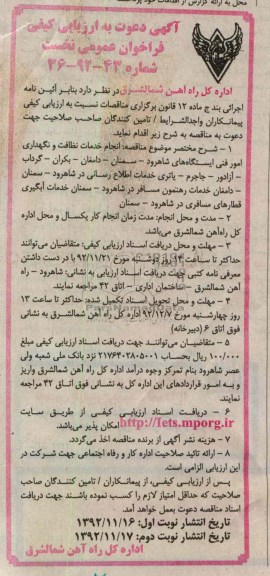 آگهی دعوت به ارزیابی کیفی
فراخوان عمومی نخست
شماره ۴۳-۹۲-۲۶
اداره کل راه آهن شمالشرق در نظر دارد بنابر آئین نامه
اجرائی بند ج ماده ۱۲ قانون برگزاری مناقصات نسبت به ارزیابی کیفی
پیمانکاران واجدالشرایط / تامین کنندگان صاحب صلاحیت جهت
دعوت به مناقصه به شرح زیر اقدام نماید.
۱ – شرح مختصر موضوع مناقصه: انجام خدمات نظافت و نگهداری
امور فنی ایستگاه‌های شاهرود – سمنان – دامغان – بکران – گرداب
– آزادور – جاجرم – یاتری خدمات اطلاع رسانی در شاهرود – سمنان
– دامغان خدمات رهنمون مسافر در شاهرود – سمنان خدمات آبگیری
قطارهای مسافری در شاهرود – سمنان
۲ – مدت و محل انجام: مدت زمان انجام کار یکسال و محل اداره
کل راه‌آهن شمالشرق می‌باشد.
۳ – مهلت و محل دریافت اسناد ارزیابی کیفی: متقاضیان می‌توانند
حداکثر تا ساعت ۱۴ روز دوشنبه مورخ ۹۲/۱۱/۲۱ با در دست داشتن
معرفی نامه کتبی جهت دریافت اسناد ارزیابی به نشانی: شاهرود – راه
آهن شمالشرق – ساختمان اداری – اتاق ۴۲ مراجعه نمایند.
۴ – مهلت و محل تحویل اسناد تکمیل شده: حداکثر تا ساعت ۱۳
روز چهارشنبه مورخ ۹۲/۱۲/۷ اداره کل راه آهن شمالشرق به نشانی
فوق اتاق ۶ (دبیرخانه)
۵ – متقاضیان می‌توانند جهت دریافت اسناد ارزیابی کیفی مبلغ
۱۰۰/۰۰۰ ریال به حساب ۲۱۷۶۴۰۲۸۰۵۰۰۱ نزد بانک ملی شعبه ولی
عصر شاهرود بنام تمرکز وجوه درآمد اداره کل راه آهن شمالشرق واریز
و به امور قراردادهای این اداره کل به نشانی فوق اتاق ۴۲ مراجعه
نمایند.
۶ – دریافت اسناد ارزیابی کیفی از طریق سایت
http://iets.mporg.ir امکان پذیر می‌باشد.
۷ – هزینه نشر آگهی از برنده مناقصه اخذ می‌گردد.
۸ – ارائه تائید صلاحیت اداره کار و رفاه اجتماعی جهت شرکت در
این ارزیابی الزامی است.
پس از ارزیابی کیفی، از پیمانکاران / تامین کنندگان صاحب
صلاحیت که حداقل امتیاز لازم را کسب نموده باشند جهت دریافت
اسناد مناقصه دعوت بعمل خواهد آمد.
تاریخ انتشار نوبت اول: ۱۳۹۲/۱۱/۱۶
تاریخ انتشار نوبت دوم: ۱۳۹۲/۱۱/۱۷
اداره کل راه آهن شمالشرق